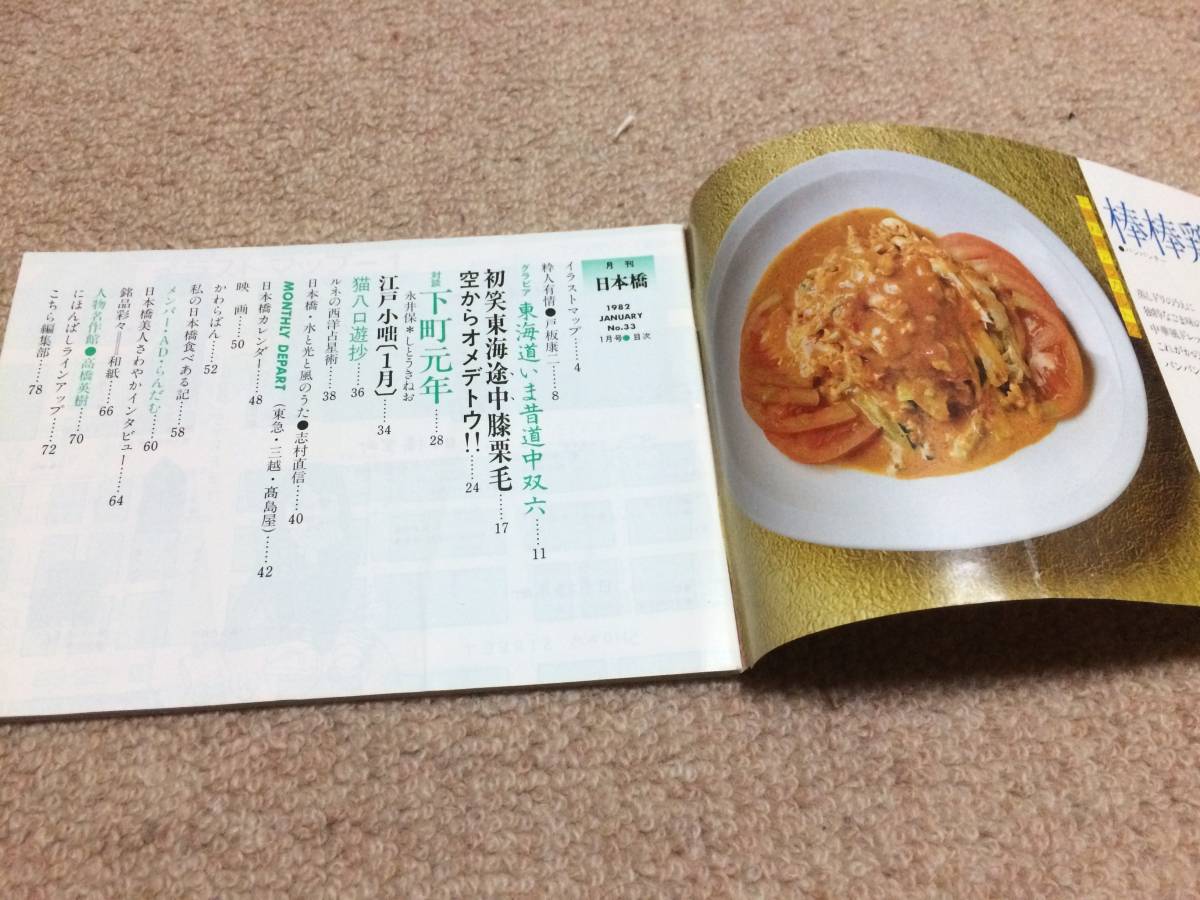 月刊
日本橋
1982
JANUARY
No.33
1月号●目次
イラストマップ……4
粋人有情●戸板康二……8
グラビア 東海道いま昔道中双六……11
初笑東海途中膝栗毛……17
空からオメデトウ!!……24
対談 下町元年……28
永井保*しとうきねお
江戸小咄〔1月〕……34
猫八口遊抄……36
ルネの西洋占星術……38
日本橋・水と光と風のうた●志村直信……40
MONTHLY DEPART (東急・三越・高島屋)……42
日本橋カレンダー……48
映画……50
かわらばん……52
私の日本橋食べある記……58
メンバー・AD・らんだむ……60
日本橋美人さわやかインタビュー……64
銘品彩々――和紙……66
人物名作館●高橋英樹……70
にほんばしラインアップ……72
こちら編集部……78
棒棒鶏